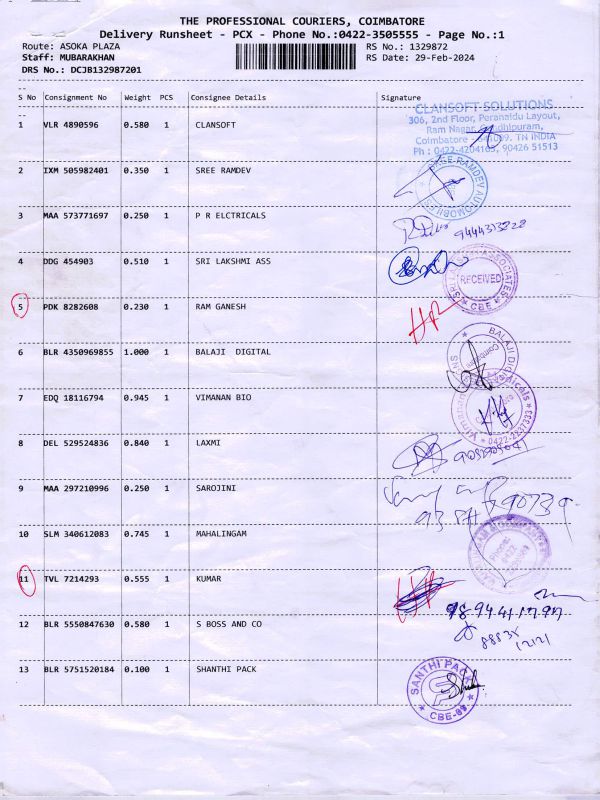 THE PROFESSIONAL COURIERS, COIMBATORE
Delivery Runsheet - PCX - Phone No.:0422-3505555 - Page No.:1
Route: ASOKA PLAZA
RS No.: 1329872
Staff: MUBARAKHAN
RS Date: 29-Feb-2024
DRS No.: DCJB132987201
S No Consignment No Weight PCS Consignee Details Signature
CLANSOFT SOLUTIONS
306, 2nd Floor, Peranaidu Layout,
Ram Nagar, Gandhipuram,
1 VLR 4890596 0.580 1 CLANSOFT
Coimbatore TN INDIA
Ph : 0422-4204165, 90426 51513
2 IXM 505982401 0.350 1 SREE RAMDEV
SREE RAMDEV AUTOMOBILES
3 MAA 573771697 0.250 1 P R ELCTRICALS
4 DDG 454903 0.510 1 SRI LAKSHMI ASS
RECEIVED
CBE
5 PDK 8282608 0.230 1 RAM GANESH
6 BLR 4350969855 1.000 1 BALAJI DIGITAL
BALAJI
7 EDQ 18116794 0.945 1 VIMANAN BIO
0422-2237333
8 DEL 529524836 0.840 1 LAXMI
9 MAA 297210996 0.250 1 SAROJINI
10 SLM 340612083 0.745 1 MAHALINGAM
11 TVL 7214293 0.555 1 KUMAR
12 BLR 5550847630 0.580 1 S BOSS AND CO
13 BLR 5751520184 0.100 1 SHANTHI PACK
SANTHI PACK
CBE-09